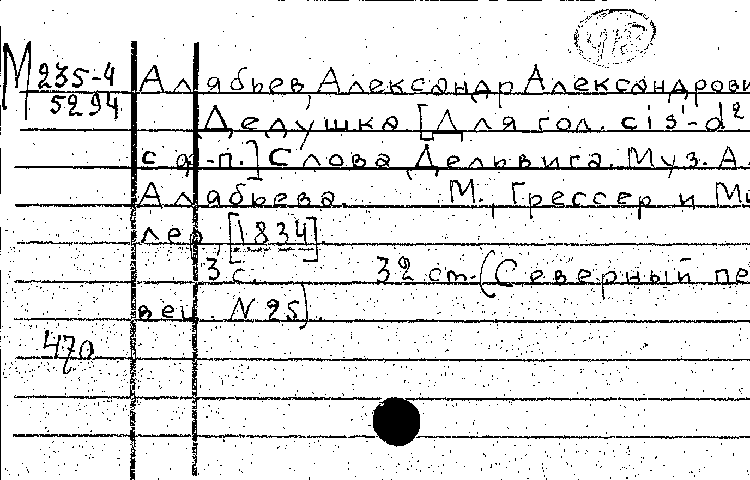 М 235-4 Алябьев, Александр Александрови
5294
Дедушка [Для гол. cis'-d²
с ф-п.] Слова Дельвига. Муз. А.
Алябьева. М., Грессер и Ми
лер, [1834].
3 с. 32 см. (Северный пе
вец. N 25).
470